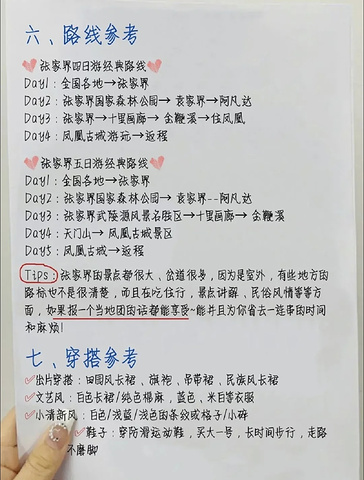 六、路线参考
张家界四日游经典路线
Day1：全国各地→张家界
Day2：张家界国家森林公园→袁家界→阿凡达
Day3：张家界→十里画廊→金鞭溪→住凤凰
Day4：凤凰古城游玩→返程
张家界五日游经典路线
Day1：全国各地→张家界
Day2：张家界国家森林公园→袁家界--阿凡达
Day3：张家界武陵源风景名胜区→十里画廊→金鞭溪
Day4：天门山→凤凰古城景区
Day5：凤凰古城→返程
Tips：张家界的景点都很大、岔道很多，因为是室外，有些地方的
路标也不是很清楚，而且在吃住行，景点讲解、民俗风情等等方
面，如果报一个当地团的话都能享受~能并且为你省去一连串的时间
和麻烦！
七、穿搭参考
出片穿搭：田园风长裙、旗袍、吊带裙、民族风长裙
文艺风：白色长裙/纯色棉麻，蓝色、米白等衣服
小清新风：白色/浅蓝/浅色的条纹或格子/小碎
鞋子：穿防滑运动鞋，买大一号，长时间步行，走路
不磨脚